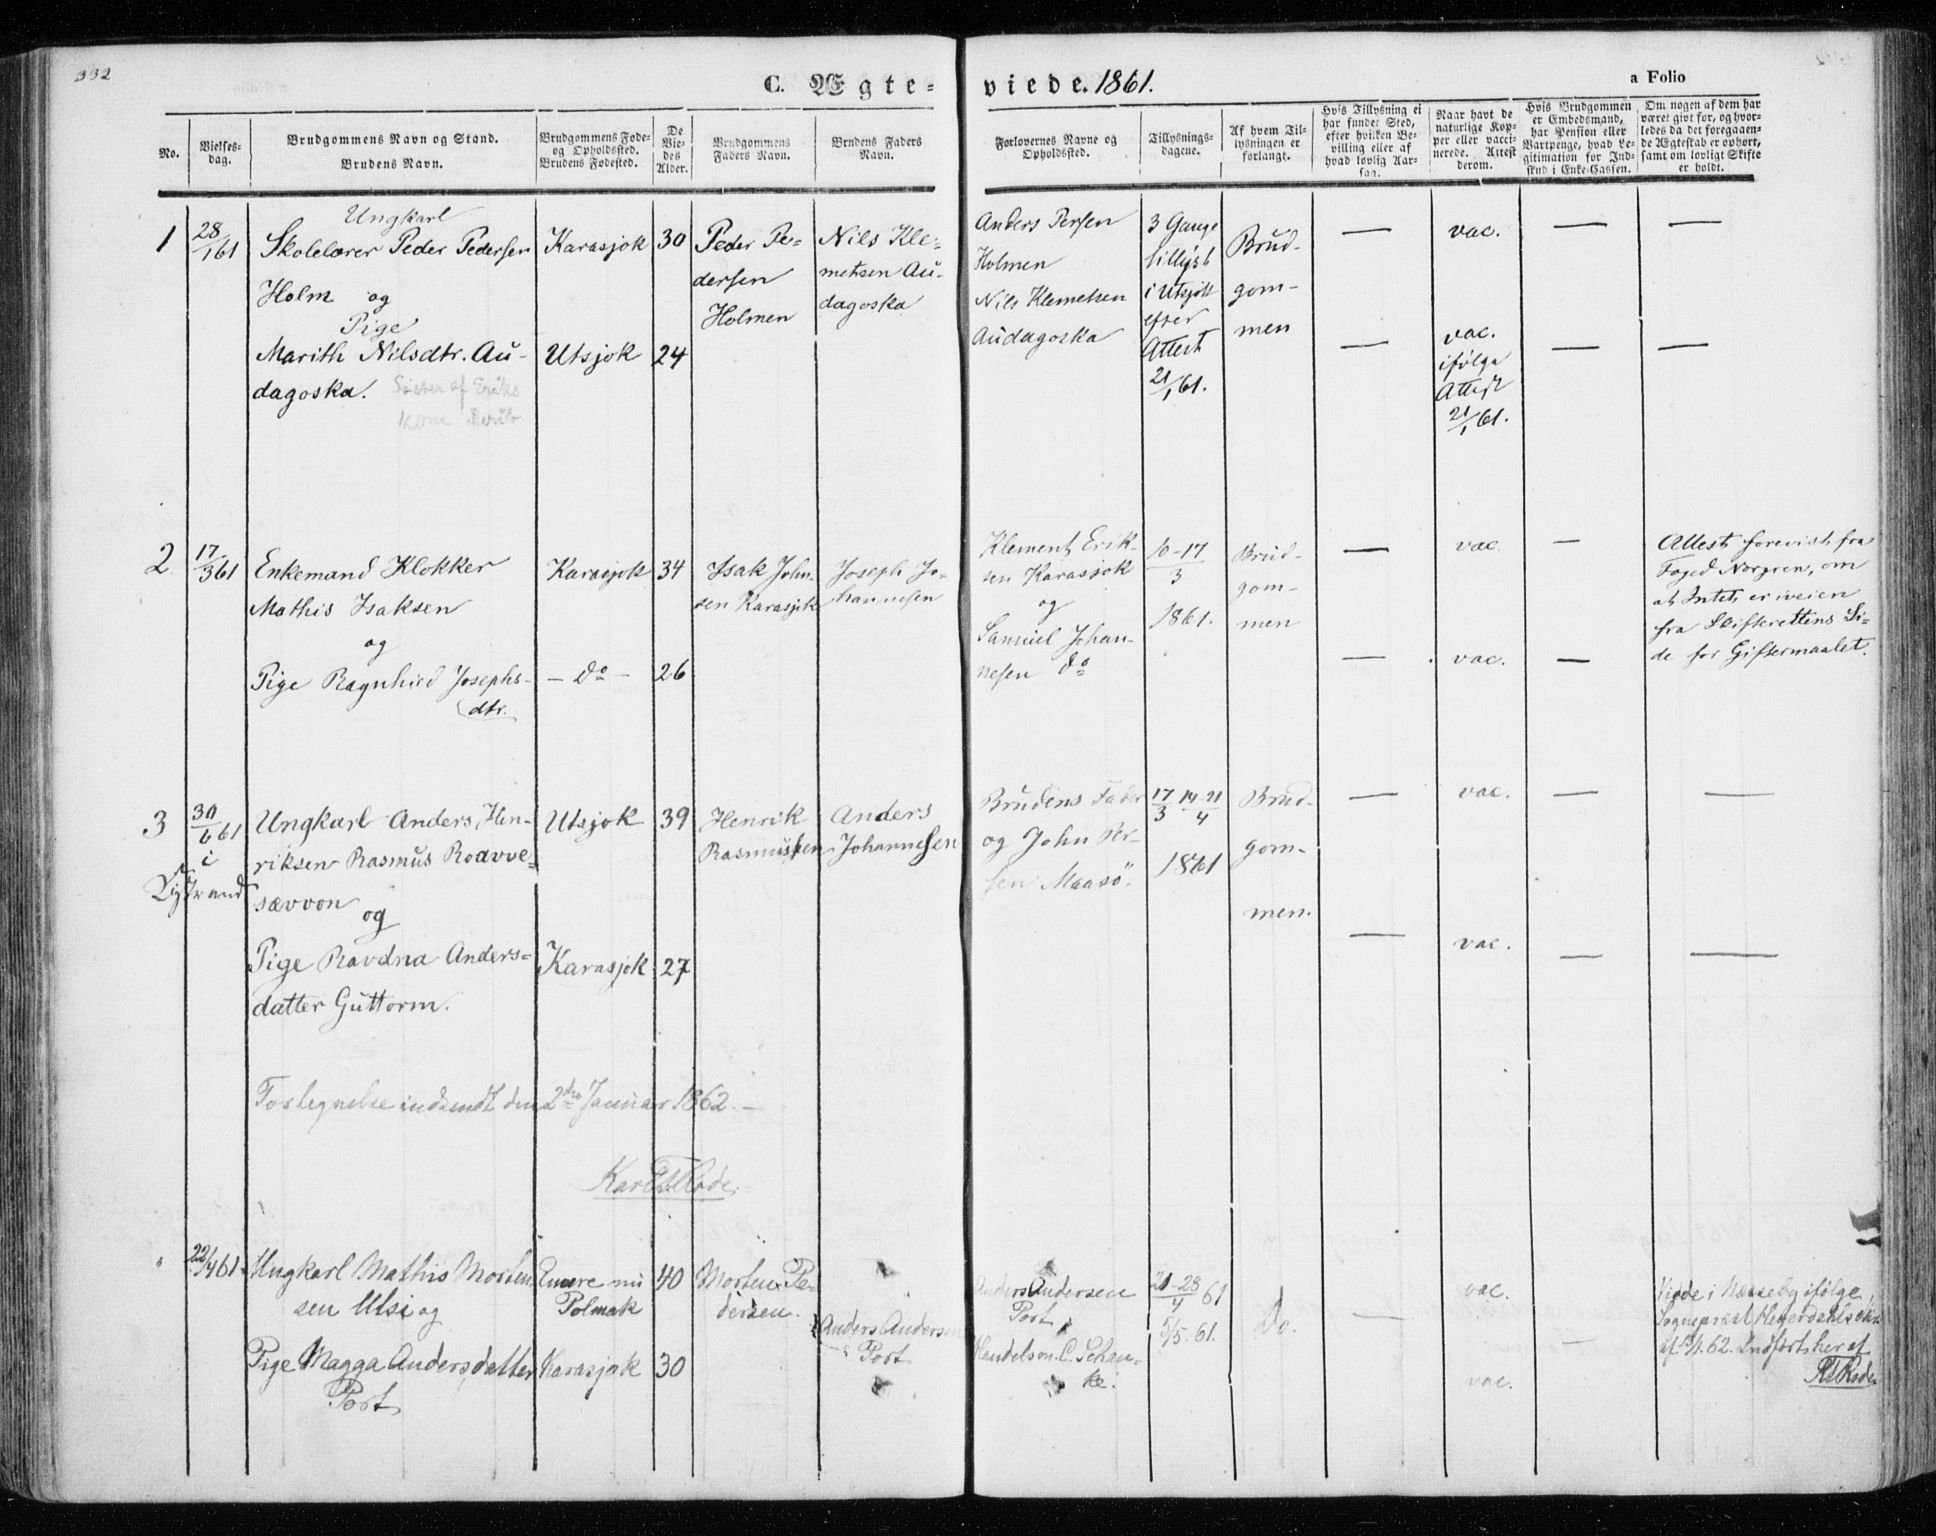 332
C. Ægte-
viede. 1861.
a Folio
No.
Vielses-
dag.
Brudgommens Navn og Stand.
Brudens Navn.
Brudgommens Føde-
og Opholdssted.
Brudens Fødested.
De
Vie-
des
Alder.
Brudgommens
Faders Navn.
Brudens Faders
Navn.
Forlovernes Navne og
Opholdssted.
Tillysnings-
dagene.
Af hvem Til-
lysningen er
forlangt.
Hvis Tillysning ei
har fundet Sted,
efter hvilken Be-
villing eller af
hvad lovlig Aar-
sag.
Naar havt de
naturlige Kop-
per eller vacci-
nerede. Attest
derom.
Hvis Brudgommen
er Embedsmand,
har Pension eller
Vartpenge, hvad Le-
gitimation for Ind-
skud i Enke-Cassen.
Om nogen af dem har
været gift før, og hvor-
ledes da det foregaaen-
de Ægteskab er ophørt,
samt om lovligt Skifte
er holdt.
1
28/1 61
Ungkarl
Skolelærer Peder Pedersen
Holm og
Pige
Marith Nilsdtr. Au-
dagoska.
Søster af Eriks
Kone
Karasjok
Utsjok
30
24
Peder Pe-
dersen
Holmen
Nils Kle-
metsen Au-
dagoska
Anders Persen
Holmen
Nils Klemetsen
Audagoska
3 Gange
tillyst
i Utsjok
efter
Attest
21/1 61.
Brud-
gom-
men
— vac. — —
— vac. — —
ifølge
Attest
21/1 61.
2
17/3 61
Enkemand Klokker
Mathis Isaksen
og
Pige Ragnhild Josephs-
dtr.
Karasjok
— do —
34
26
Isak John-
sen Karasjok
Joseph Jo-
hannesen
Klement Erik-
sen Karasjok
og
Samuel Johan-
nesen do
10-17/3
1861.
Brud-
gom-
men
— vac. —
— vac. —
Attest forevist fra
Foged Norgren, om
at Intet er iveien
fra Skifterettens Si-
de for Giftermaalet.
3
30/6 61
i
Lystrand
Ungkarl Anders Hen-
riksen Rasmus Roavve-
sævvon
og
Pige Ravdna Anders-
datter Guttorm.
Utsjok
Karasjok
39
27
Henrik
Rasmussen
Anders
Johannesen
Brudens Fader
og John Per-
sen Maasö.
17/3 14-21/4
1861
Brud-
gom-
men.
— vac. — —
— vac. — —
Fortegnelse indsendt den 2den Januar 1862. —
22/4 61.
Ungkarl Mathis Morten
sen Utsi og
Pige Magga Andersdatter
Port
Enare nu
Polmak
Karasjok
40
30
Morten Pe-
dersen.
Anders Andersen
Port
Anders Andersen
Port
Handelsm. C. Schan-
ke.
21-28/4 61
5/5. 61.
Do.
—
vac.
vac.
—
Viede i Næsseby ifølge
Sognepræst
af
62. Indført her af